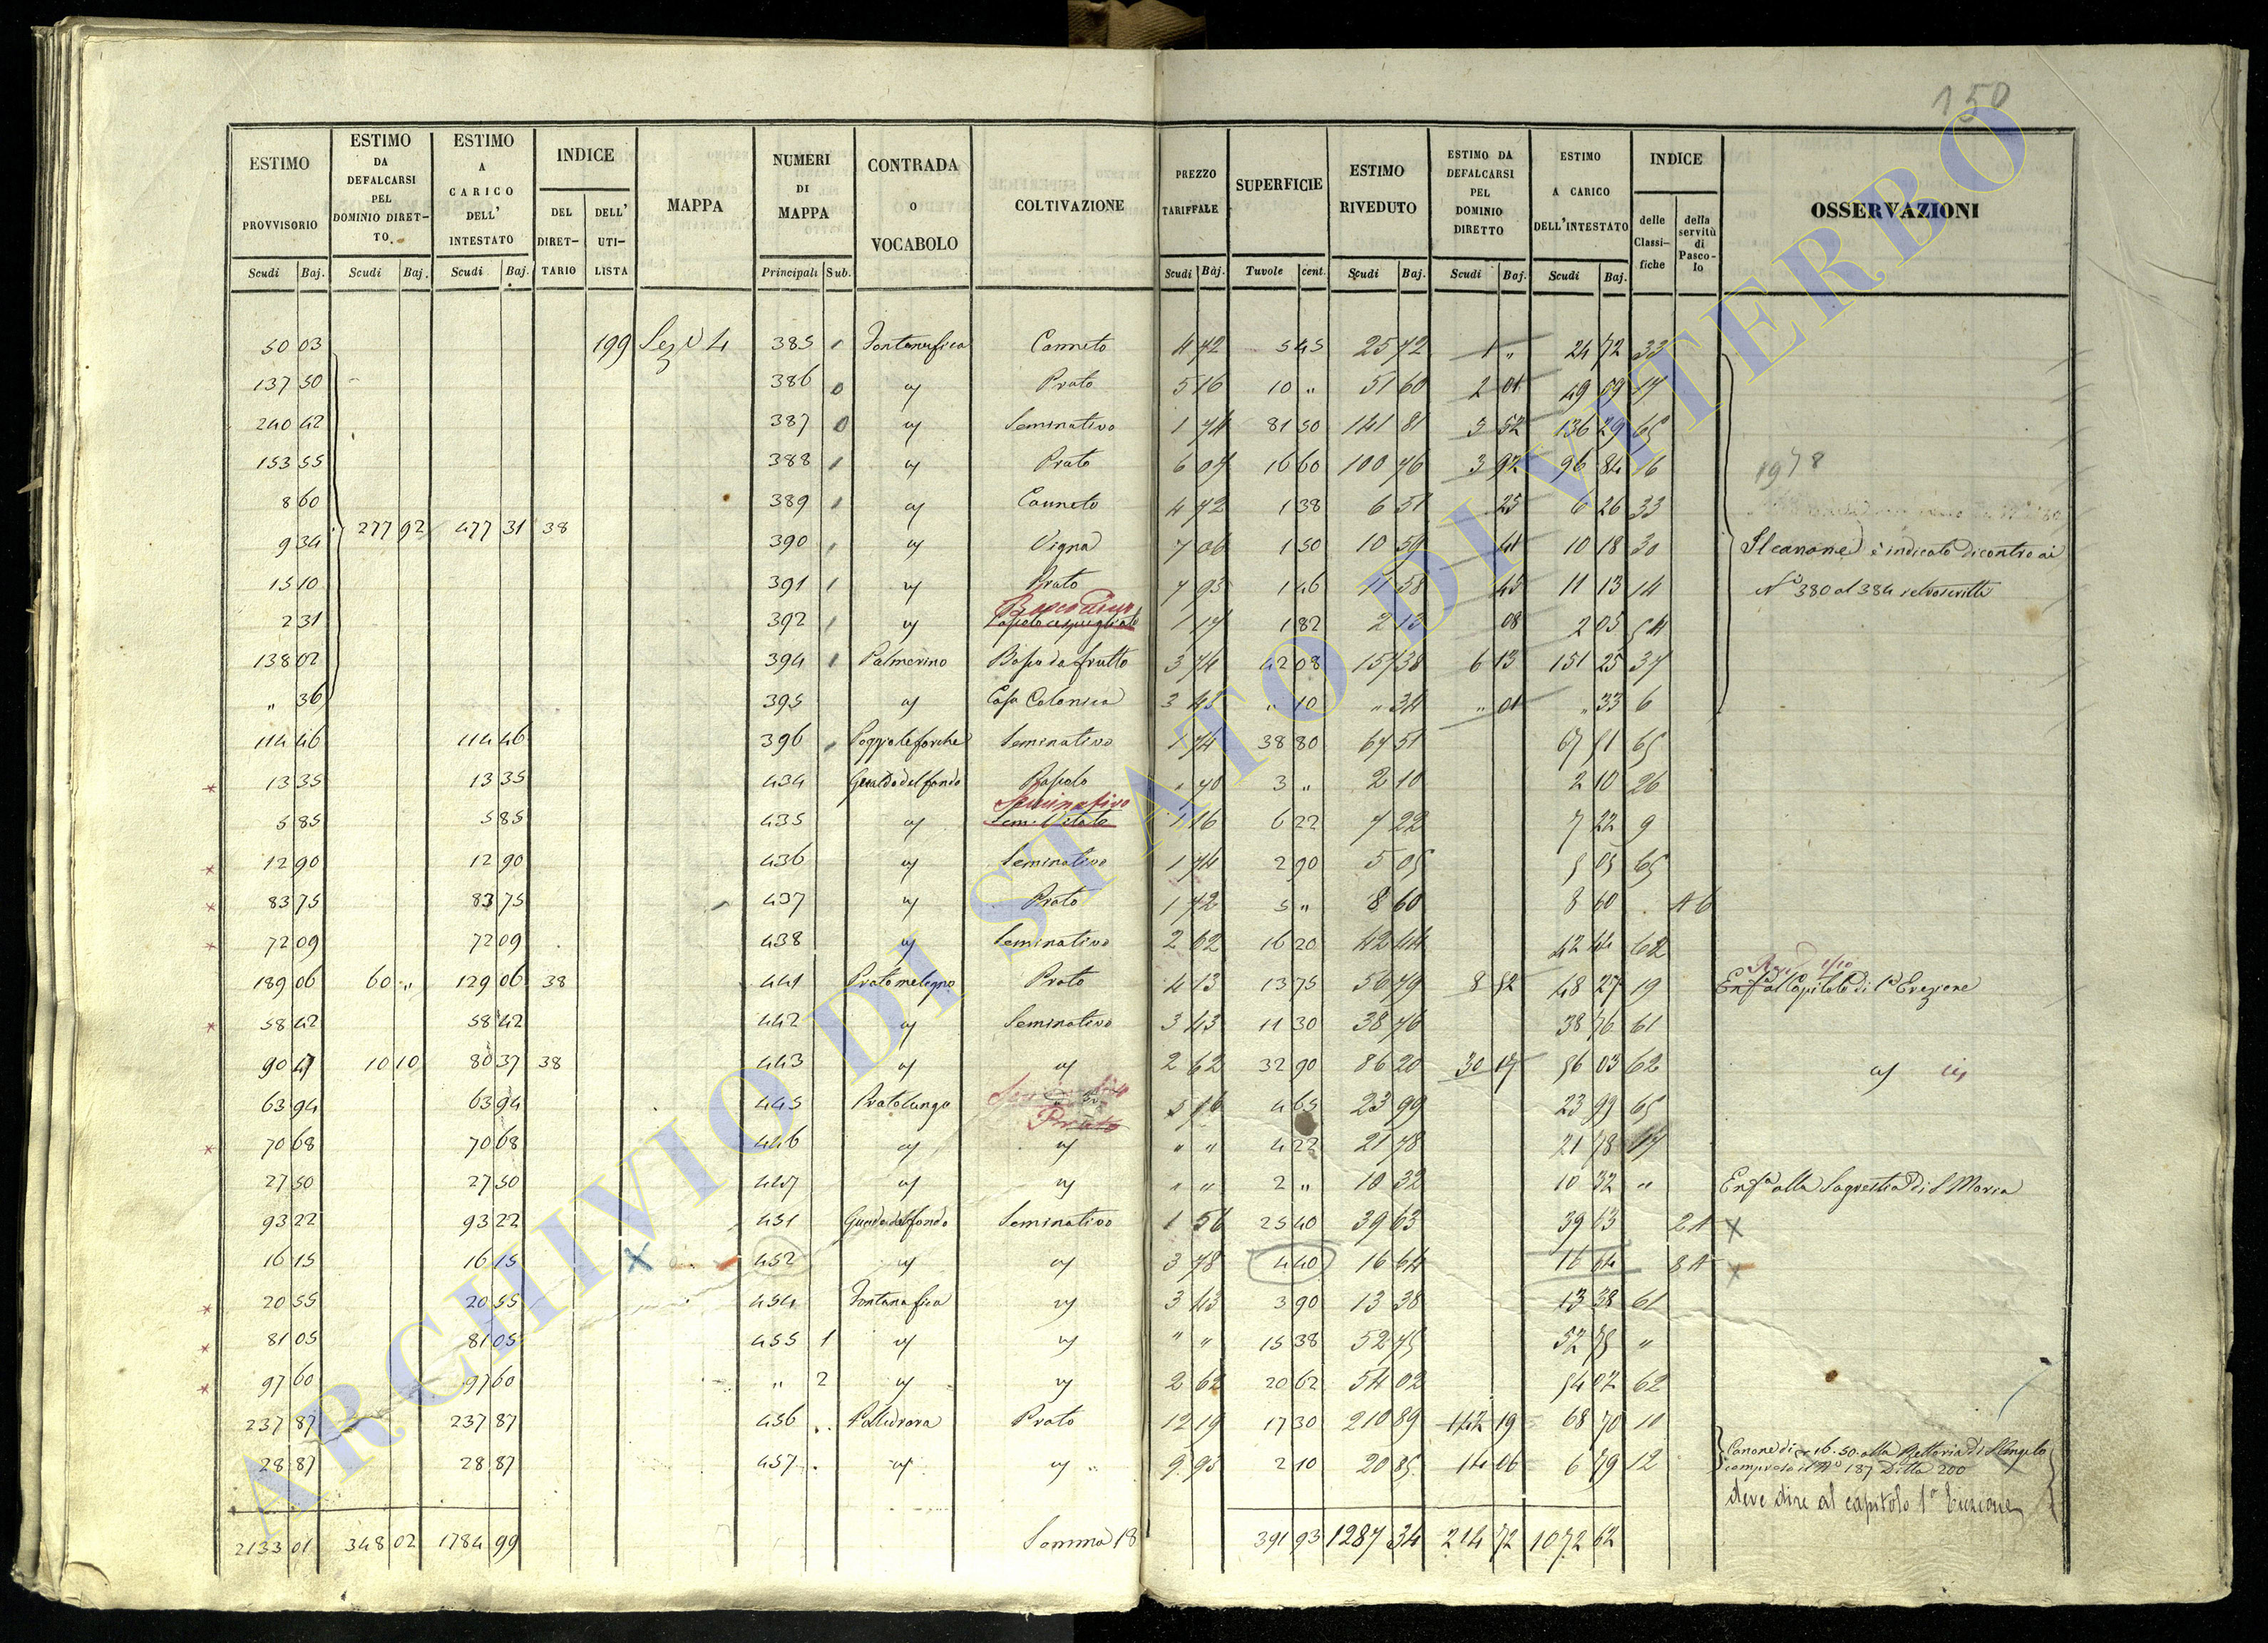 150
ESTIMO PROVVISORIO | ESTIMO DA DEFALCARSI PEL DOMINIO DIRETTO. | ESTIMO A CARICO DELL' INTESTATO | INDICE | MAPPA | NUMERI DI MAPPA | CONTRADA O VOCABOLO | COLTIVAZIONE | PREZZO TARIFFALE | SUPERFICIE | ESTIMO RIVEDUTO | ESTIMO DA DEFALCARSI PEL DOMINIO DIRETTO | ESTIMO A CARICO DELL'INTESTATO | INDICE | OSSERVAZIONI
DEL DIRETTARIO | DELL' UTILISTA | delle Classifiche | della servitù di Pascolo
Scudi | Baj. | Scudi | Baj. | Scudi | Baj. | Principali | Sub. | Scudi | Baj. | Tavole | cent. | Scudi | Baj. | Scudi | Baj. | Scudi | Baj.
50 03 | 199 | Sez. 4 | 385 | Fontanafica | Canneto | 4 72 | 5 45 | 25 72 | 1 " | 24 72 | 33
137 50 | 386 | " | Prato | 5 16 | 10 " | 51 60 | 2 01 | 49 59 | 17
240 42 | 387 | " | Seminativo | 1 74 | 81 50 | 141 81 | 5 52 | 136 29 | 65
153 55 | 388 | " | Prato | 6 07 | 16 60 | 100 76 | 3 92 | 96 84 | 16 | 1978
8 60 | 389 | " | Canneto | 4 72 | 1 38 | 6 51 | 25 | 6 26 | 33
277 92 | 477 31 | 38
9 34 | 390 | " | Vigna | 7 06 | 1 50 | 10 59 | 41 | 10 18 | 30 | Il canone è indicato dicontro ai
15 10 | 391 | " | Prato | 7 93 | 1 46 | 11 58 | 45 | 11 13 | 14 | Ni 380 al 384
Bosco
2 31 | 392 | " | Pascolo cespugliato | 1 17 | 1 82 | 2 13 | 08 | 2 05 | 54
138 02 | 394 | Palmerino | Bosco da frutto | 3 74 | 42 08 | 157 38 | 6 13 | 151 25 | 37
" 36 | 395 | " | Casa Colonica | 3 43 | " 10 | " 34 | " 01 | " 33 | 6
114 46 | 114 46 | 396 | Poggio le forche | Seminativo | 1 74 | 38 80 | 67 51 | 67 51 | 65
13 35 | 13 35 | 434 | Pascolo | " 70 | 3 " | 2 10 | 2 10 | 26
Seminativo
5 85 | 5 85 | 435 | " | Sem. Vitato | 1 16 | 6 22 | 7 22 | 7 22 | 9
12 90 | 12 90 | 436 | " | Seminativo | 1 74 | 2 90 | 5 05 | 5 05 | 65
83 75 | 83 75 | 437 | " | Prato | 1 72 | 5 " | 8 60 | 8 60 | A 6
72 09 | 72 09 | 438 | " | Seminativo | 2 62 | 16 20 | 42 44 | 42 44 | 62
189 06 | 60 " | 129 06 | 38 | 441 | Pratomelegno | Prato | 4 13 | 13 75 | 56 79 | 8 52 | 48 27 | 19 | Enfa al Capitolo di 1a Erezione
58 42 | 58 42 | 442 | " | Seminativo | 3 43 | 11 30 | 38 76 | 38 76 | 61
90 47 | 10 10 | 80 37 | 38 | 443 | " | " | 2 62 | 32 90 | 86 20 | 30 17 | 56 03 | 62 | "
63 94 | 63 94 | 445 | Pratolungo | 5 16 | 4 65 | 23 99 | 23 99 | 65
Prato
70 68 | 70 68 | 446 | " | " | " " | 4 22 | 21 78 | 21 78 | 17
27 50 | 27 50 | 447 | " | " | " " | 2 " | 10 32 | 10 32 | " | Enfa alla Sagrestia di S Maria
93 22 | 93 22 | 451 | Guadodelfondo | Seminativo | 1 56 | 25 40 | 39 63 | 39 63 | 2 A | x
16 15 | 16 15 | x | 452 | " | " | 3 78 | 4 40 | 16 64 | 16 64 | 8 A | x
20 55 | 20 55 | 454 | Fontanafica | " | 3 43 | 3 90 | 13 38 | 13 38 | 61
81 05 | 81 05 | 455 | 1 | " | " | " " | 15 38 | 52 75 | 52 75 | "
97 60 | 97 60 | " | 2 | " | " | 2 62 | 20 62 | 54 02 | 54 02 | 62
237 87 | 237 87 | 456 | Pallidrara | Prato | 12 19 | 17 30 | 210 89 | 142 19 | 68 70 | 10
28 87 | 28 87 | 457 | " | " | 9 93 | 2 10 | 20 85 | 14 06 | 6 79 | 12 | Canone di 16.50 alla Rettoria di S Angelo
compreso il No 187 Ditta 200
deve dire al capitolo 1a Erezione
2133 01 | 348 02 | 1784 99 | Somma 18 | 391 93 | 1287 34 | 214 72 | 1072 62
ARCHIVIO DI STATO DI VITERBO